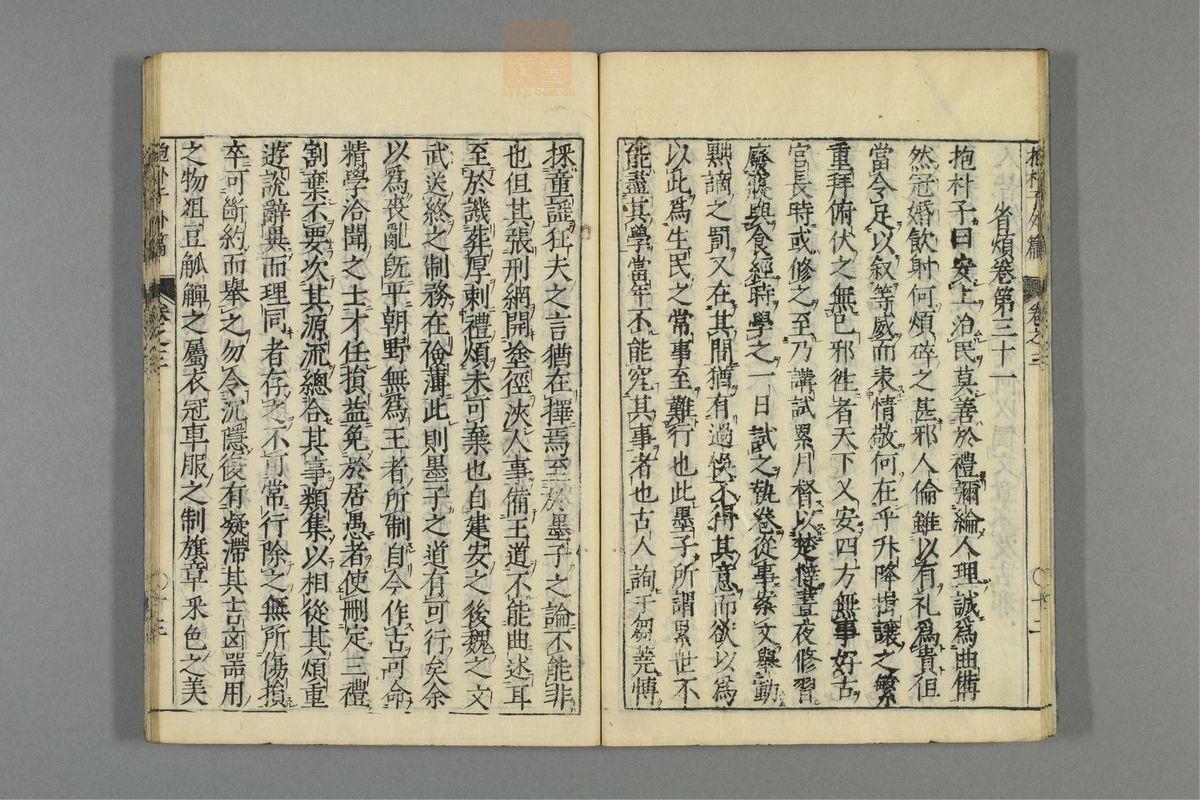 省煩卷第三十一
抱朴子曰安上治民莫善於禮彌綸人理誠爲曲備
然冠婚飲射何煩碎之甚邪人倫雖以有礼爲貴但
當令足以叙等威而表情敬何在乎升降揖讓之繁
重拜俯伏之無已邪徃者天下乂安四方無事好古
官長時或修之至乃講試累月督以楚撻晝夜修習
廢寢與食經時學之一日試之執卷從事案文舉動
黜謫之罰又在其間猶有過悞不得其意而欲以爲
以此爲生民之常事至難行也此墨子所謂累世不
能盡其學當年不能究其事者也古人詢于芻蕘愽
採童謡狂夫之言猶在擇焉至於墨子之論不能非
也但其張刑網開塗徑浹人事備王道不能曲述耳
至於譏葬厚刺禮煩未可棄也自建安之後魏之文
武送終之制務在儉薄此則墨子之道有可行矣余
以爲喪亂旣平朝野無爲王者所制自今作古可命
精學洽聞之士才任損益免於居愚者使刪定三禮
割棄不要次其源流總合其事類集以相從其煩重
遊說辭異而理同者存之不可常行除之無所傷損
卒可斷約而舉之勿令沉隱復有凝滯其吉凶器用
之物狙豆觚觶之屬衣冠車服之制旗章采色之美
抱朴子外篇
卷之三